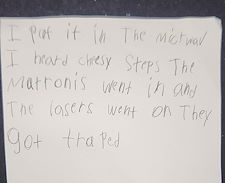 I put it in The micrwav
I heard cheesy Steps The
Marronis went in and
The lasers went on They
got traped